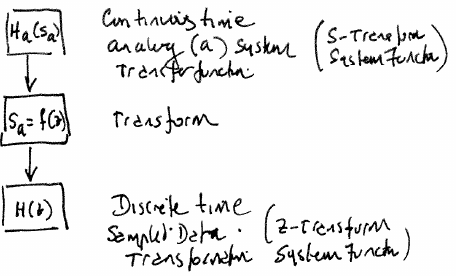 Ha(Sa)
Continuous time
analog (a) System
Transfer function
(S-Transform
System Function)
Sa = f(z)
Transform
H(z)
Discrete time
Sampled-Data
Transformation
(Z-Transform
System Function)